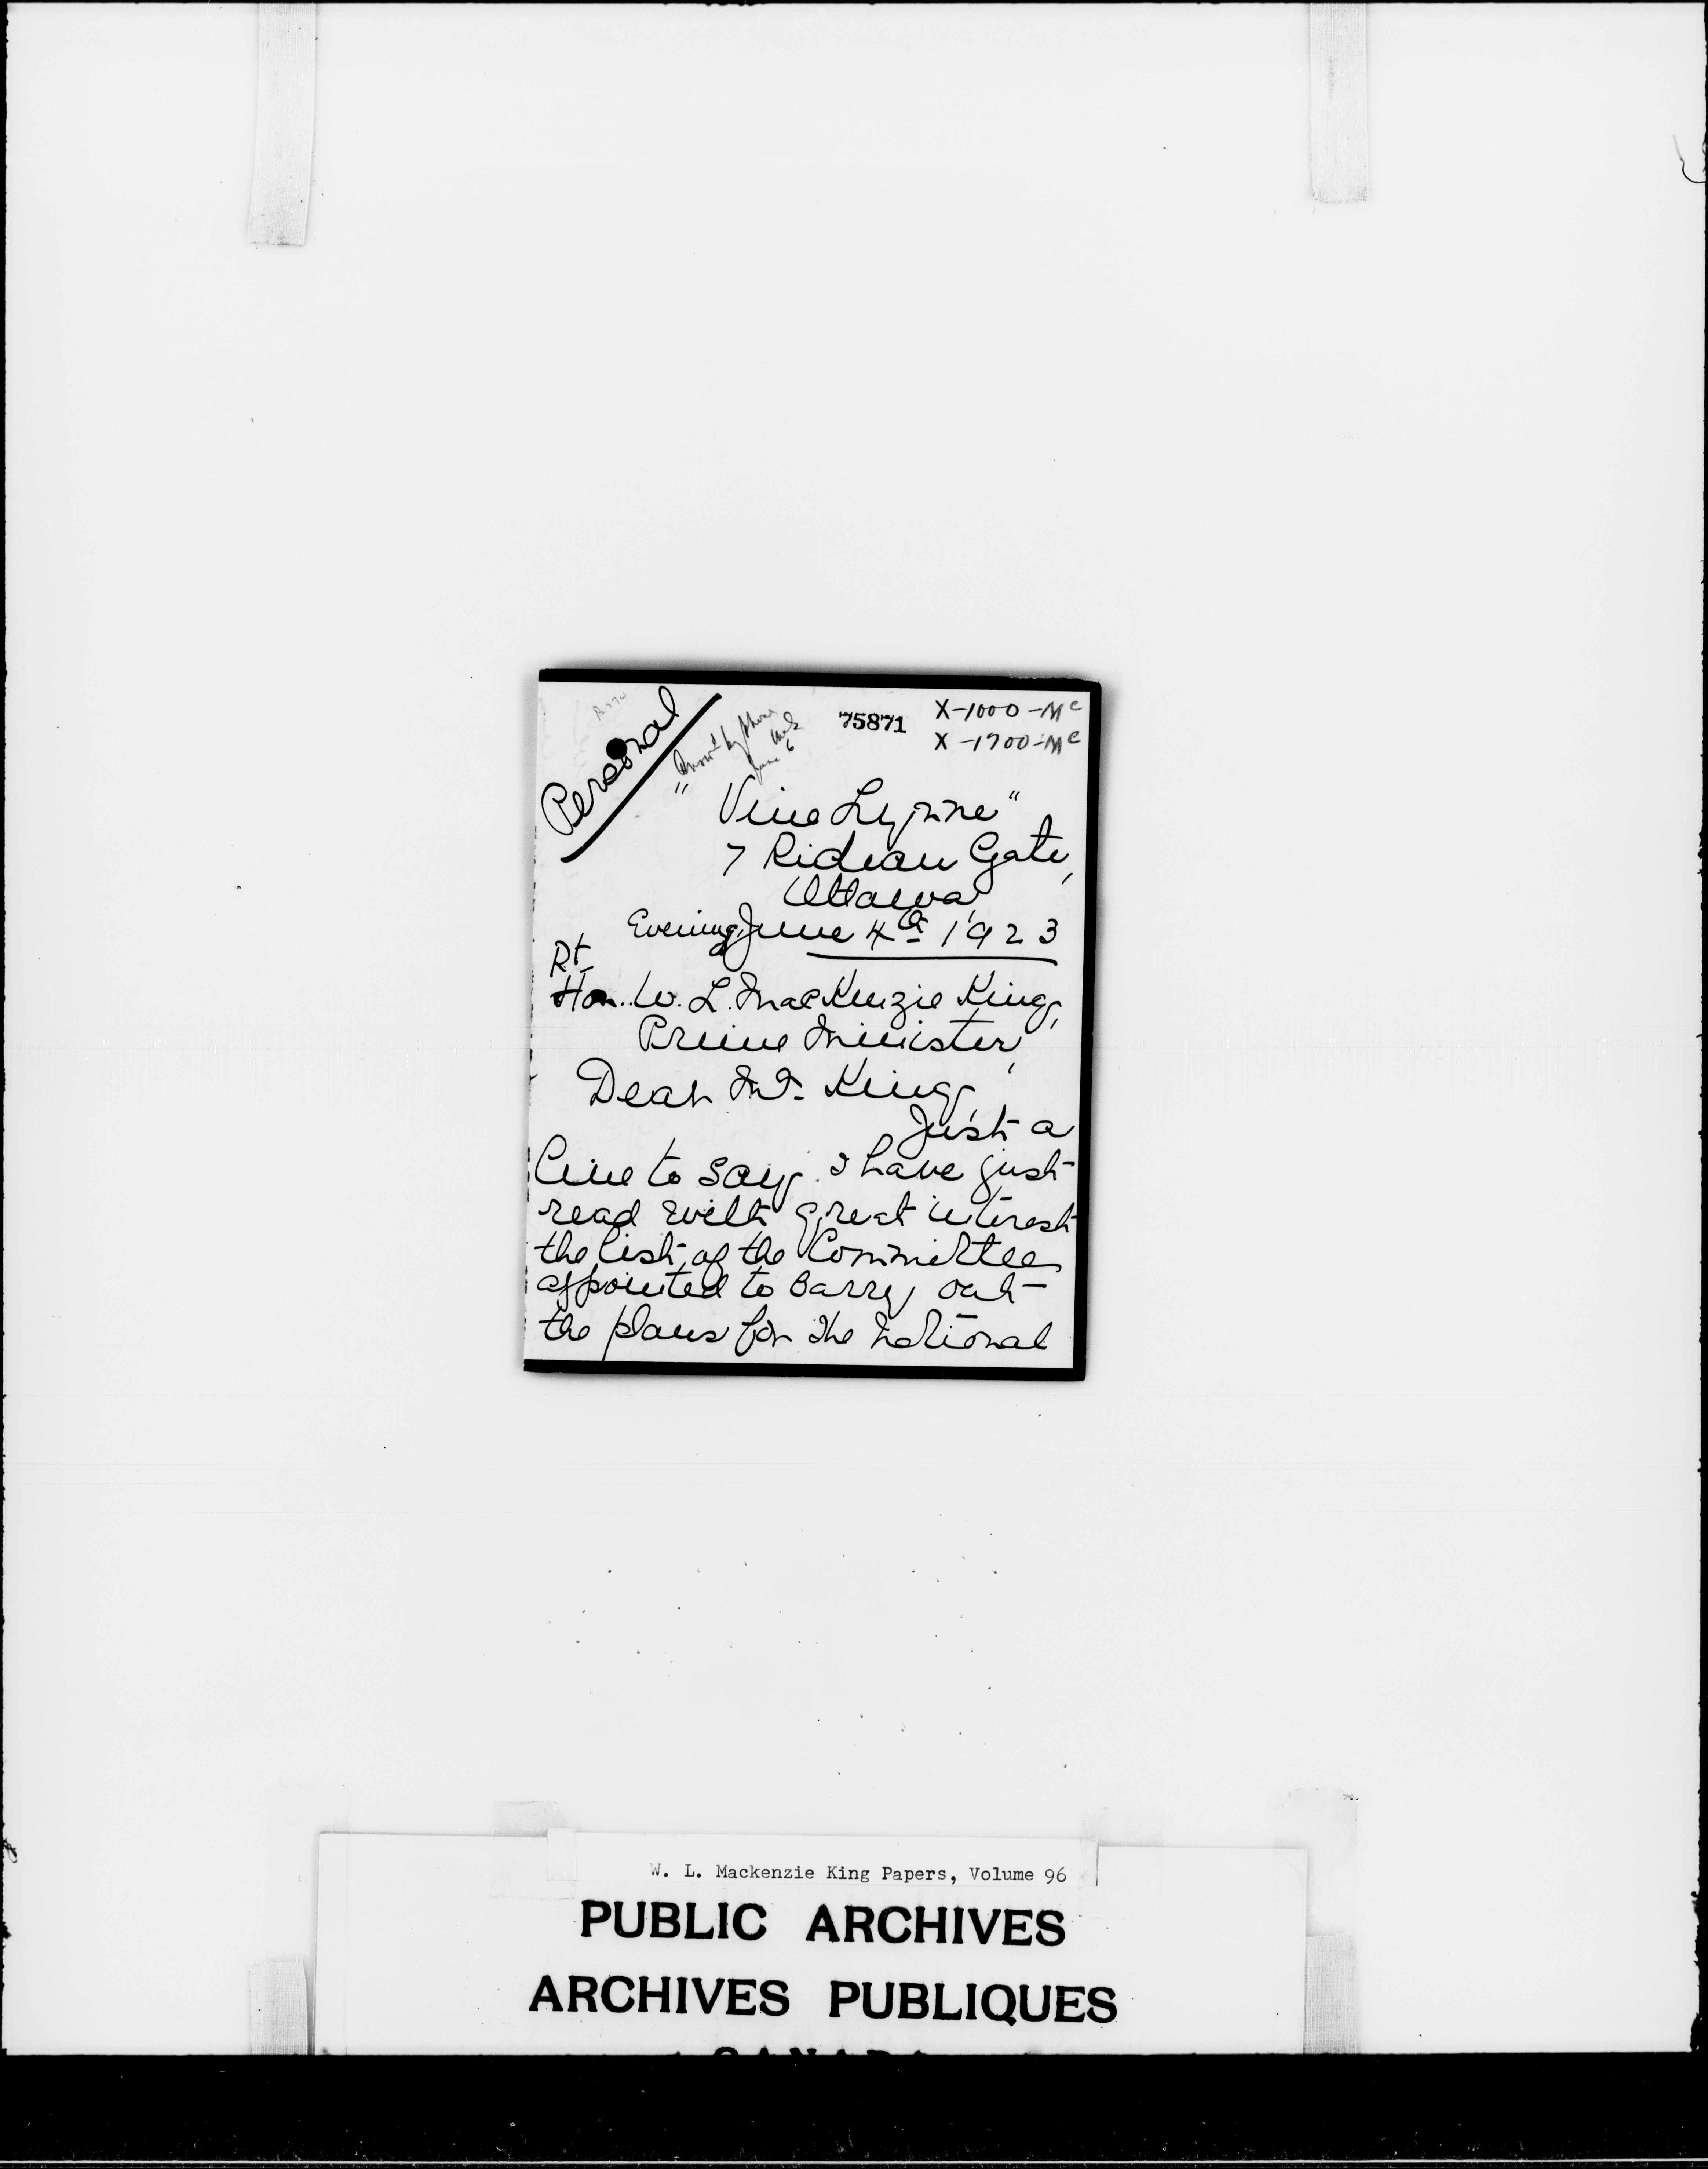 Personal
Answd by phone
June 6
75871
X-1000-Mc
X-1700-Mc
"Vine Lynne"
7 Rideau Gate,
Ottawa
Evening, June 4th 1923
Rt.
Hon. W. L. MacKenzie King,
Prime Minister,
Dear Mr. King,
Just a
line to say I have just
read with great interest
the list of the Committee
appointed to carry out
the plans for the National
W. L. Mackenzie King Papers, Volume 96
PUBLIC ARCHIVES
ARCHIVES PUBLIQUES
CANADA